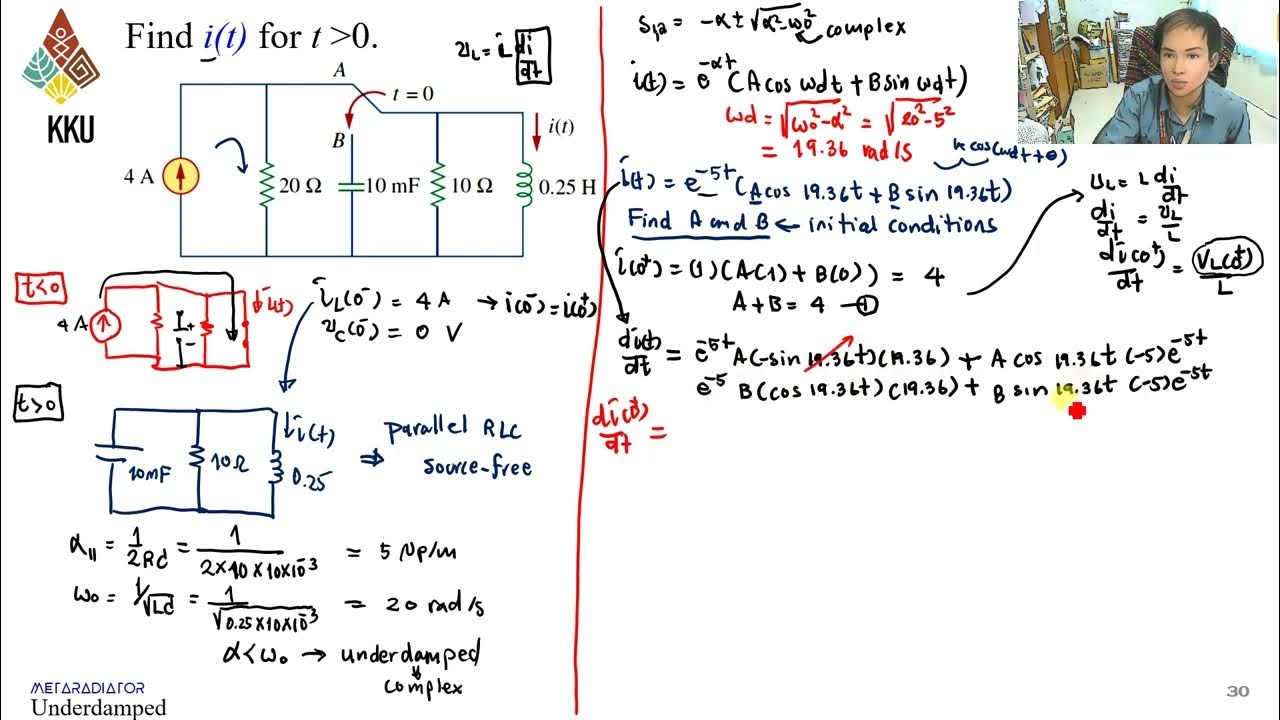 Find i(t) for t >0.
KKU
v_L = L di/dt
A
t = 0
B
i(t)
4 A
20 Ω
10 mF
10 Ω
0.25 H
t<0
4A
i(t)
+
−
i_L(0⁻) = 4 A → i(0⁻) = i(0⁺)
v_C(0⁻) = 0 V
t>0
10mF
10Ω
i(t)
0.25
⇒ parallel RLC
source-free
α_11 = 1/2RC = 1/(2×10×10×10⁻³) = 5 Np/m
ω₀ = 1/√LC = 1/√(0.25×10×10⁻³) = 20 rad/s
α<ω₀ → underdamped
complex
METARADIATOR
Underdamped
s₁,₂ = -α ± √(α²-ω₀²) complex
i(t) = e^-αt (A cos ωdt + B sin ωdt)
ωd = √(ω₀²-α²) = √(20²-5²)
= 19.36 rad/s
k cos(ωdt+θ)
i(t) = e^-5t (A cos 19.36t + B sin 19.36t)
Find A and B ← initial conditions
v_L = L di/dt
di/dt = v_L/L
di(0⁺)/dt = V_L(0⁺)/L
i(0⁺) = (1)(A(1) + B(0)) = 4
A+B = 4 —①
di(t)/dt = e^-5t A(-sin 19.36t)(19.36) + A cos 19.36t (-5)e^-5t
e^-5 B(cos 19.36t)(19.36) + B sin 19.36t (-5)e^-5t
di(0⁺)/dt =
30